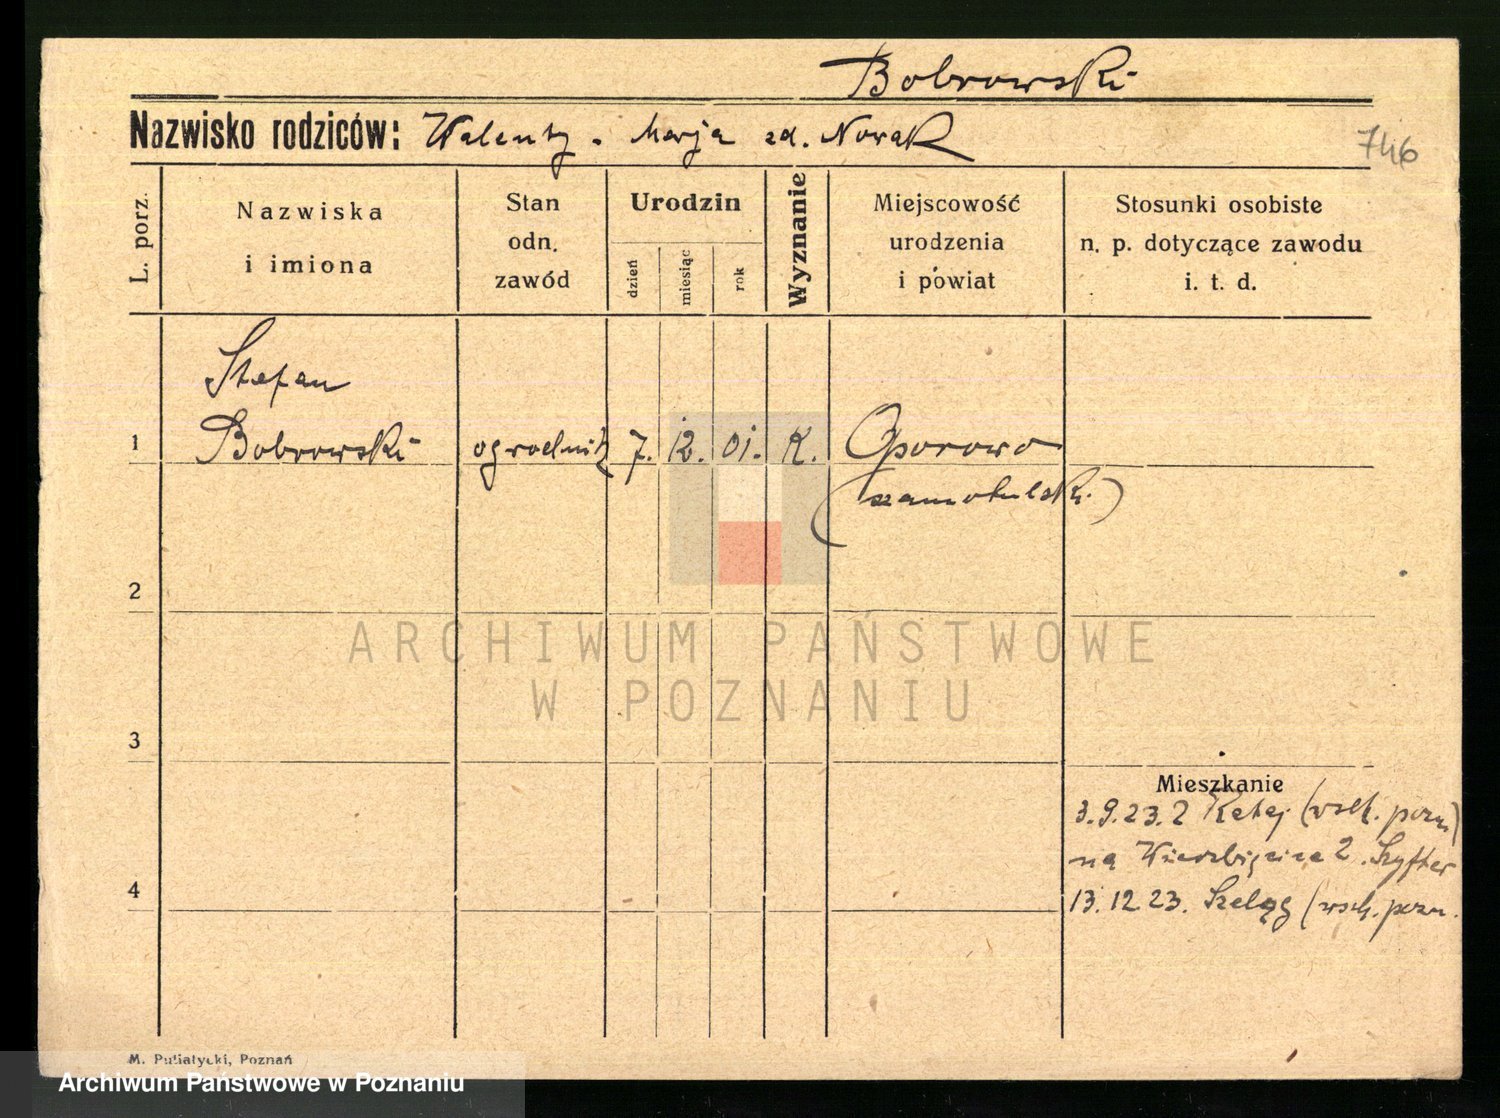 Bobrowski
Nazwisko rodziców: Walenty . Marja zd. Nowak
746
L. porz.
Nazwiska
i imiona
Stan
odn.
zawód
Urodzin
dzień
miesiąc
rok
Wyznanie
Miejscowość
urodzenia
i powiat
Stosunki osobiste
n. p. dotyczące zawodu
i. t. d.
Stefan
1 Bobrowski ogrodnik 7. 12. 01. K. Oporowo
(szamotulski.)
2
3
Mieszkanie
3.9.23. z (wsch. pozn)
na 2. Szyfter
4
13.12 23. Szeląg (wsch. pozn.
M. Putiatycki, Poznań
ARCHIWUM PAŃSTWOWE
W POZNANIU
Archiwum Państwowe w Poznaniu